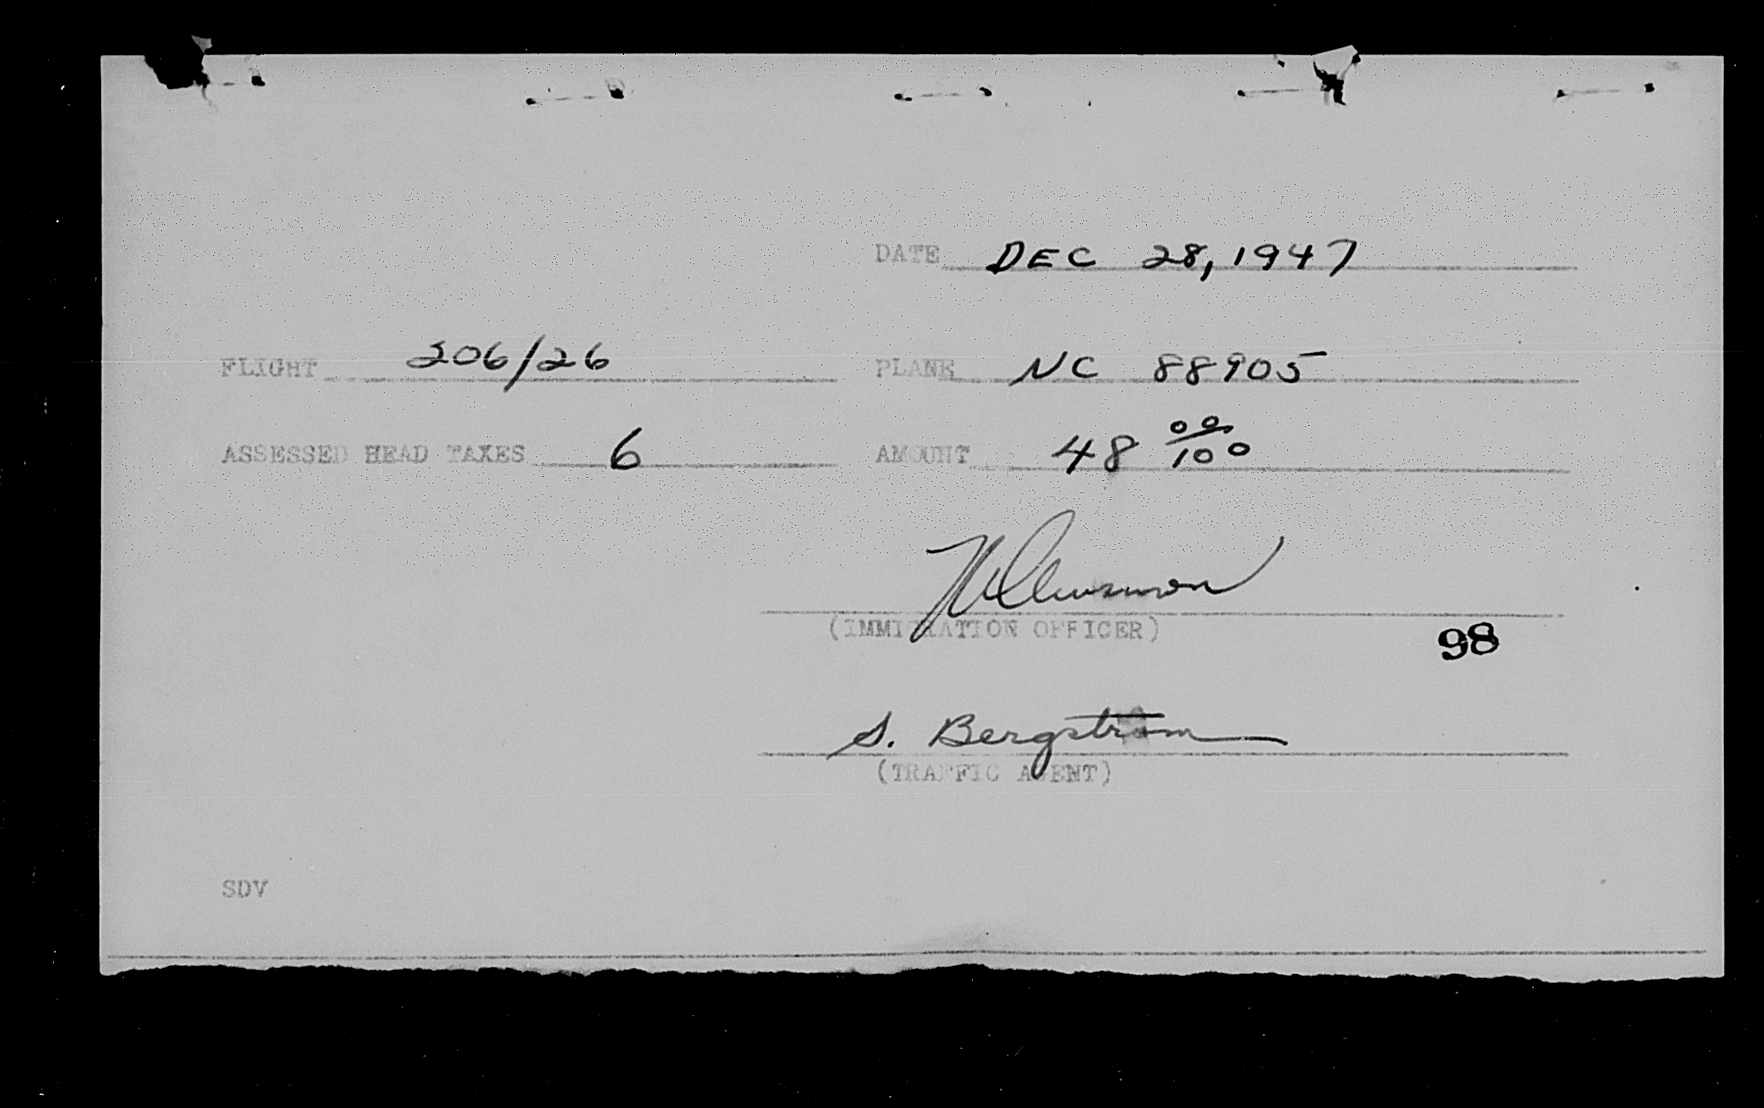 DATE DEC 28, 1947
FLIGHT 206/26 PLANE NC 88905
ASSESSED HEAD TAXES 6 AMOUNT 48 00/100
(IMMIGRATION OFFICER)
98
S. Bergstrom
(TRAFFIC AGENT)
SDV